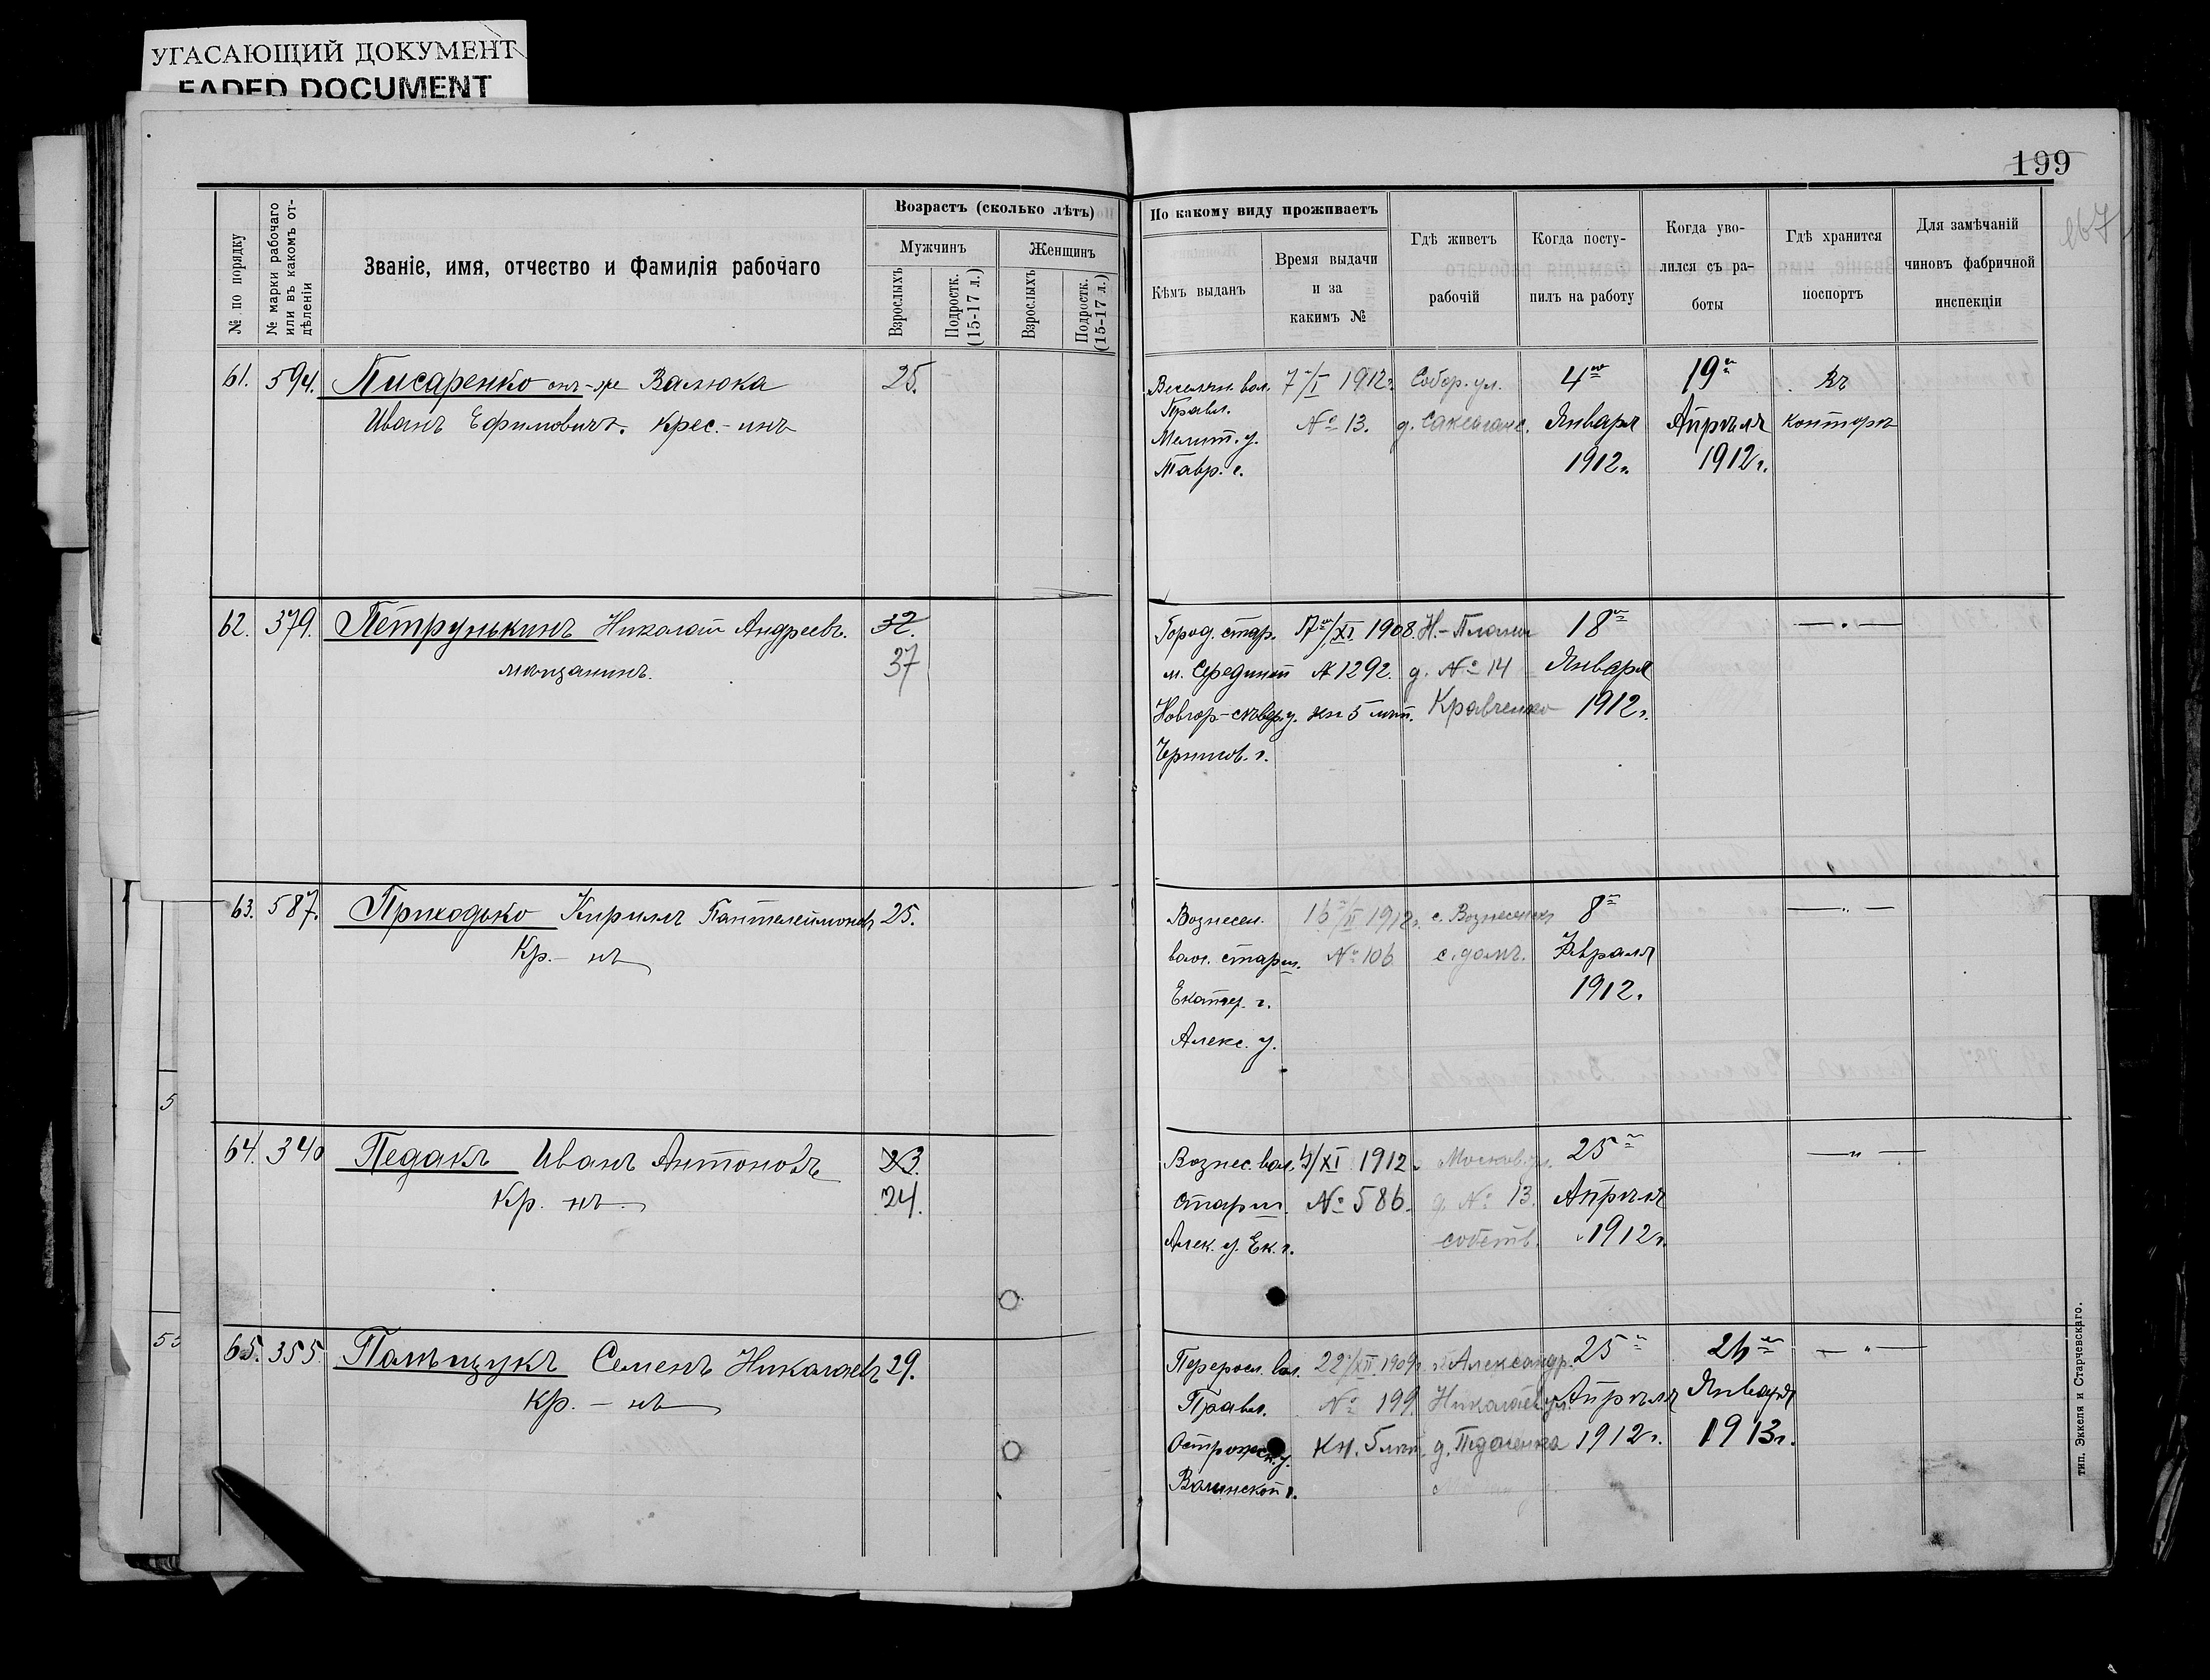 УГАСАЮЩИЙ ДОКУМЕНТ
FADED DOCUMENT
199
№ по порядку
№ марки рабочаго
или въ какомъ от-
дѣленіи
Званіе, имя, отчество и фамилія рабочаго
Возрастъ (сколько лѣтъ)
Мужчинъ
Женщинъ
Взрослыхъ
Подростк.
(15-17 л.)
Взрослыхъ
Подростк.
(15-17 л.)
По какому виду проживаетъ
Кѣмъ выданъ
Время выдачи
и за
какимъ №
Гдѣ живетъ
рабочій
Когда посту-
пилъ на работу
Когда уво-
лился съ ра-
боты
Гдѣ хранится
поспортъ
Для замѣчаній
чиновъ фабричной
инспекціи
61. 594. Писаренко онъ-же Валюка 25.
Иванъ Ефимовичъ. Крес.-инъ
вол.
Правл.
Мелит. у.
Тавр. г.
7/I 1912г.
№ 13.
Собор. ул.
д. Саксаганс.
4го
Января
1912г.
19го
Апрѣля
1912г.
Въ
конторѣ
62. 379. Петрунькинъ Николай Андреевъ. 32.
мѣщанинъ. 37
Город. стар.
м. Середин
Новгор-сѣвер у.
Чернигов. г.
17го/XI 1908.
№ 1292.
на 5 лѣт.
Н.-Планъ
д. № 14
Кравченко
18го
Января
1912г.
— „ —
63. 587. Приходько Кирилъ Пантелеймоновъ 25.
Кр. - нъ
Вознесен.
волос. старш.
Екатер. г.
Алекс. у.
16/II 1912г.
№ 106
с. Вознесенск
с. домъ.
8го
Февраля
1912.
— „ —
64. 340 Педакъ Иванъ Антоновъ 23.
Кр. нъ 24.
Вознес. вол.
старш.
Алек. у. Ек. г.
4/XI 1912
№ 586.
Москов. ул.
д. № 13.
собств.
25го
Апрѣля
1912г.
— „ —
65. 355. Полѣщукъ Семенъ Николаевъ 29.
Кр. — нъ
Переросл. вол.
Правл.
Острожск. у.
Волинской г.
22/XII 1909г.
№ 199.
Кн. 5 лѣт.
Александр.
Николаев. ул.
д. Педоченка
25го
Апрѣля
1912г.
26го
Января
1913г.
— „ —
тип. Эккеля и Старчевскаго.